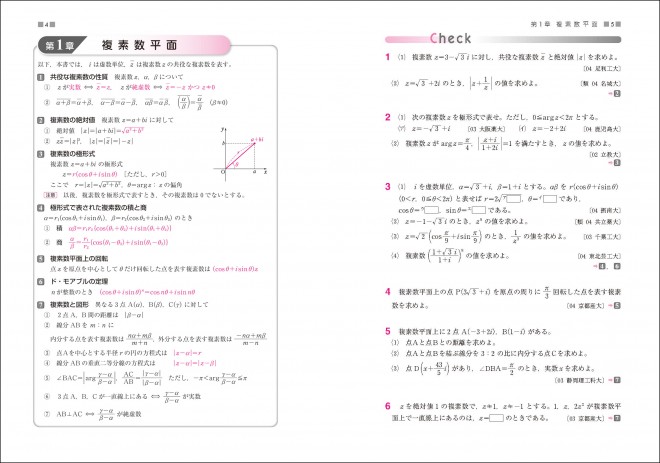 ■4■
第1章 複素数平面
以下，本書では，iは虚数単位，z̄は複素数zの共役な複素数を表す。
1 共役な複素数の性質 複素数z，α，βについて
① zが実数 ⇔ z̄=z， zが純虚数 ⇔ z̄=−z かつ z≠0
② \overline{α+β}=ᾱ+β̄，\overline{α−β}=ᾱ−β̄，\overline{αβ}=ᾱβ̄，\overline{(α/β)}=ᾱ/β̄ (β≠0)
2 複素数の絶対値 複素数z=a+biに対して
① 絶対値 |z|=|a+bi|=√(a²+b²)
② zz̄=|z|²，|z|=|z̄|=|−z|
3 複素数の極形式
複素数z=a+biの極形式
z=r(cosθ+isinθ) ［ただし，r>0］
ここで r=|z|=√(a²+b²)，θ=argz：zの偏角
注意 以後，複素数を極形式で表すとき，その複素数は0でないとする。
y
b
a+bi
r
θ
O
a
x
4 極形式で表された複素数の積と商
α=r₁(cosθ₁+isinθ₁)，β=r₂(cosθ₂+isinθ₂) のとき
① 積 αβ=r₁r₂{cos(θ₁+θ₂)+isin(θ₁+θ₂)}
② 商 α/β=r₁/r₂{cos(θ₁−θ₂)+isin(θ₁−θ₂)}
5 複素数平面上の回転
点zを原点を中心としてθだけ回転した点を表す複素数は (cosθ+isinθ)z
6 ド・モアブルの定理
nが整数のとき (cosθ+isinθ)ⁿ=cosnθ+isinnθ
7 複素数と図形 異なる3点A(α)，B(β)，C(γ)に対して
① 2点A，B間の距離は |β−α|
② 線分ABをm：nに
内分する点を表す複素数は (nα+mβ)/(m+n)，外分する点を表す複素数は (−nα+mβ)/(m−n)
③ 点Aを中心とする半径rの円の方程式は |z−α|=r
④ 線分ABの垂直二等分線の方程式は |z−α|=|z−β|
⑤ ∠BAC=|arg (γ−α)/(β−α)|，AC/AB=|γ−α|/|β−α| ただし，−π<arg (γ−α)/(β−α)≦π
⑥ 3点A，B，Cが一直線上にある ⇔ (γ−α)/(β−α)が実数
⑦ AB⊥AC ⇔ (γ−α)/(β−α)が純虚数
第1章 複素数平面 ■5■
Check
1 (1) 複素数z=3−√3iに対し，共役な複素数z̄と絶対値|z|を求めよ。
［04 足利工大］
(2) z=√3+2iのとき，|z+1/z|の値を求めよ。 ［類 04 名城大］
⇒2
2 (1) 次の複素数zを極形式で表せ。ただし，0≦argz<2πとする。
(ア) z=−√3+i ［03 大阪東大］ (イ) z=−2+2i ［04 鹿児島大］
(2) 複素数zがargz=π/4，|(z+i)/(1+2i)|=1を満たすとき，zの値を求めよ。
［02 立教大］
⇒3
3 (1) iを虚数単位，α=√3+i，β=1+iとする。αβをr(cosθ+isinθ)
(0<r，0≦θ<2π)と表せばr=2√□，θ=□であり，
cosθ=□，sinθ=□である。 ［04 湘南大］
(2) z=−1−√3iのとき，z⁶の値を求めよ。 ［類 04 共立薬大］
(3) z=√2(cos π/9+isin π/9)のとき，1/z³の値を求めよ。 ［03 千葉工大］
(4) 複素数((1+√3i)/(1+i))⁸の値を求めよ。 ［04 東北芸工大］
⇒4，6
4 複素数平面上の点P(3√3+i)を原点の周りにπ/3回転した点を表す複素
数を求めよ。 ［04 京都産大］⇒5
5 複素数平面上に2点A(−3+2i)，B(1−i)がある。
(1) 点Aと点Bとの距離を求めよ。
(2) 点Aと点Bを結ぶ線分を3：2の比に内分する点Cを求めよ。
(3) 点D(x+43/5 i)があり，∠DBA=π/2のとき，実数xを求めよ。
［03 静岡理工科大］⇒7
6 zを絶対値1の複素数で，z≠1，z≠−1とする。1，z，2z²が複素数平
面上で一直線上にあるのは，z=□のときである。 ［03 京都産大］⇒7